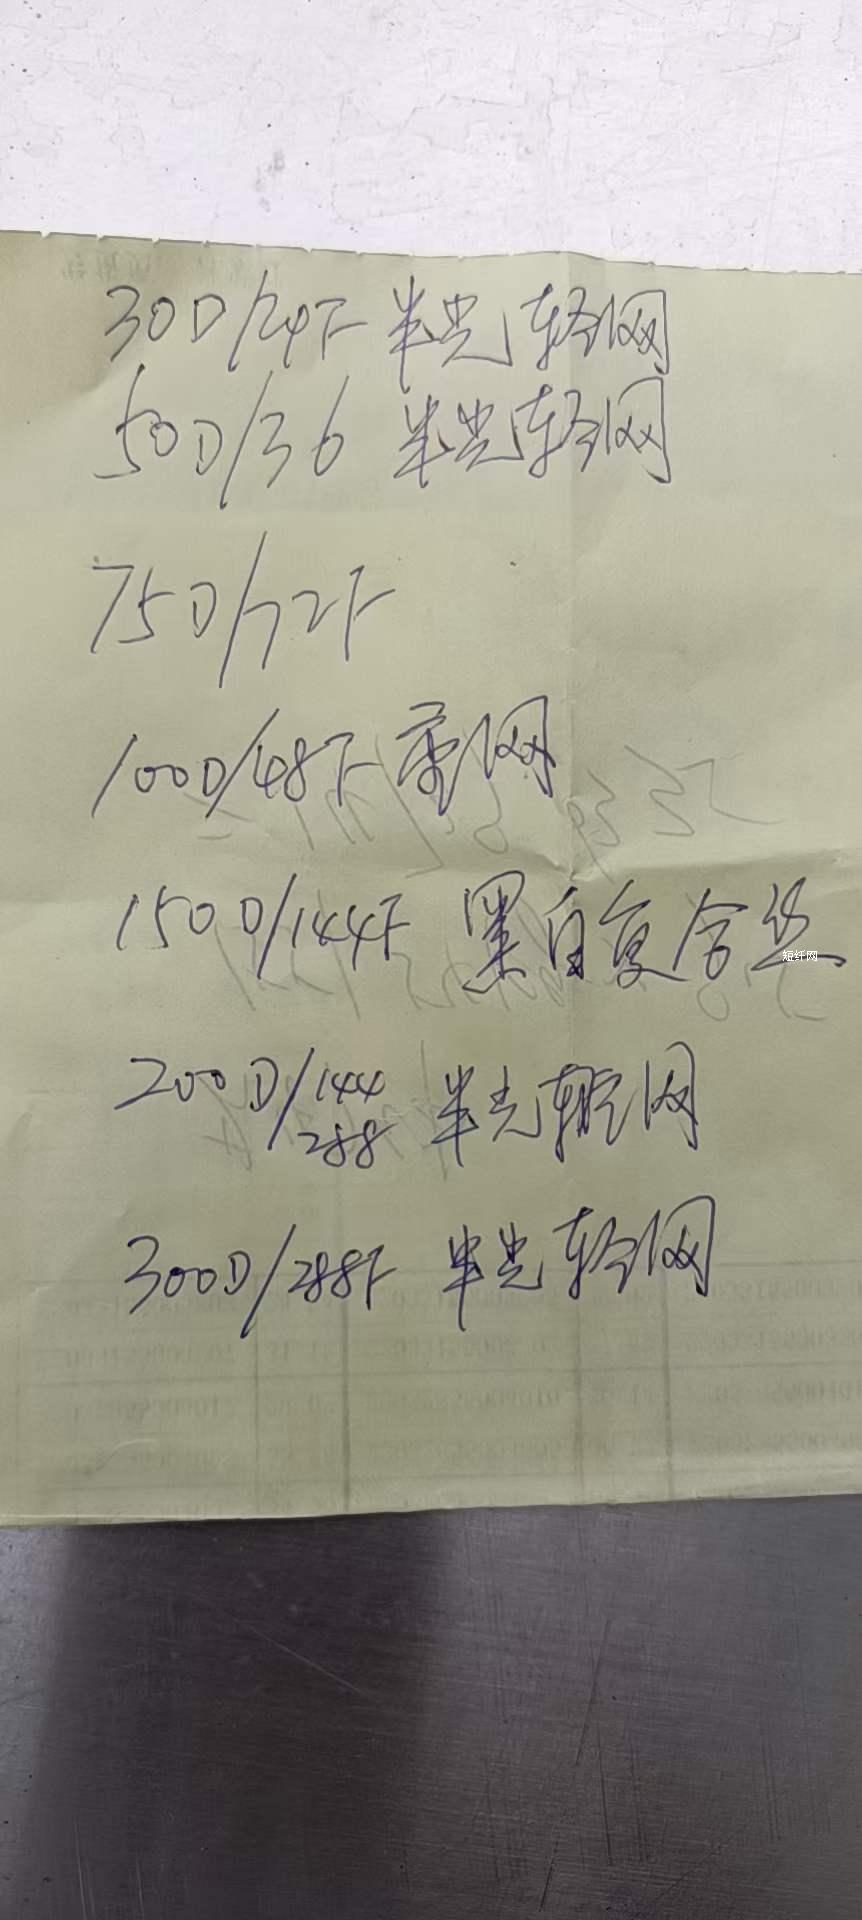 30D/24F 半光轻网
50D/36 半光轻网
75D/72F
100D/48F 重网
150D/144F 黑白复合丝
短纤网
200D/144 半光轻网
288
300D/288F 半光轻网